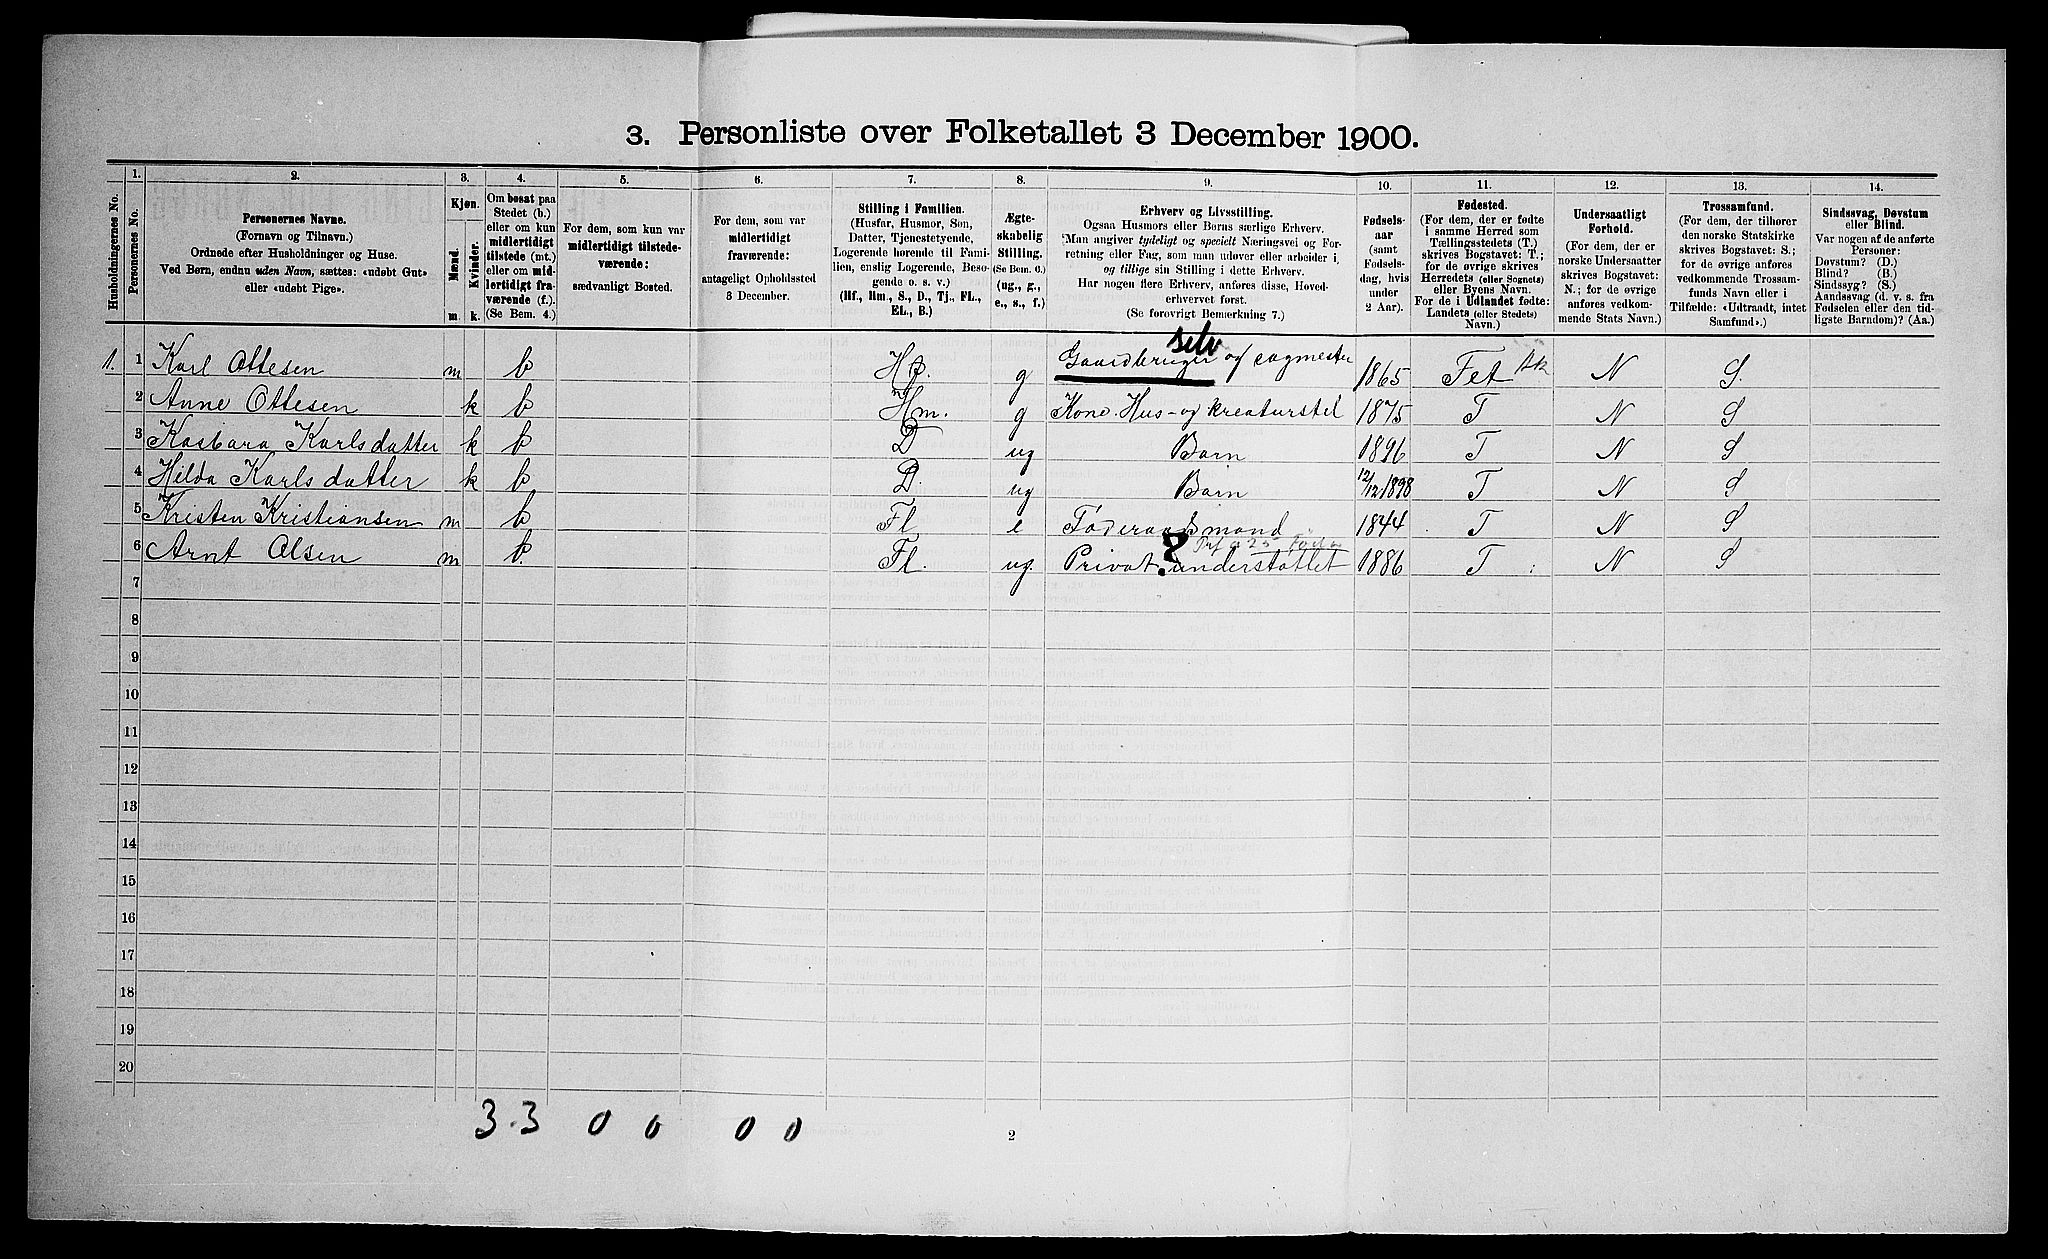 3. Personliste over Folketallet 3 December 1900.
Husholdningernes No.
1.
Personernes No.
2.
Personernes Navne.
(Fornavn og Tilnavn.)
Ordnede efter Husholdninger og Huse.
Ved Børn, endnu uden Navn, sættes: «udøbt Gut»
eller «udøbt Pige».
3.
Kjøn.
Mænd.
Kvinder.
m.
k.
4.
Om bosat paa
Stedet (b.)
eller om kun
midlertidigt
tilstede (mt.)
eller om mid-
lertidigt fra-
værende (f.).
(Se Bem. 4.)
5.
For dem, som kun var
midlertidigt tilstede-
værende:
sædvanligt Bosted.
6.
For dem, som var
midlertidigt
fraværende:
antageligt Opholdssted
3 December.
7.
Stilling i Familien.
(Husfar, Husmor, Søn,
Datter, Tjenestetyende,
Logerende hørende til Fami-
lien, enslig Logerende, Besø-
gende o. s. v.)
(Hf., Hm., S., D., Tj., FL.,
EL., B.)
8.
Ægte-
skabelig
Stilling.
(Se Bem. 6.)
(ug., g.,
e., s., f.)
9.
Erhverv og Livsstilling.
Ogsaa Husmors eller Børns særlige Erhverv.
Man angiver tydeligt og specielt Næringsvei og For-
retning eller Fag, som man udøver eller arbeider i,
og tillige sin Stilling i dette Erhverv.
Har nogen flere Erhverv, anføres disse, Hoved-
erhvervet først.
(Se forøvrigt Bemærkning 7.)
10.
Fødsels-
aar
(samt
Fødsels-
dag, hvis
under
2 Aar).
11.
Fødested.
(For dem, der er fødte
i samme Herred som
Tællingsstedets (T.)
skrives Bogstavet: T.;
for de øvrige skrives
Herredets (eller Sognets)
eller Byens Navn.
For de i Udlandet fødte:
Landets (eller Stedets)
Navn.)
12.
Undersaatligt
Forhold.
(For dem, der er
norske Undersaatter
skrives Bogstavet:
N.; for de øvrige
anføres vedkom-
mende Stats Navn.)
13.
Trossamfund.
(For dem, der tilhører
den norske Statskirke
skrives Bogstavet: S.;
for de øvrige anføres
vedkommende Trossam-
funds Navn eller i
Tilfælde: «Udtraadt, intet
Samfund».)
14.
Sindssvag, Døvstum
eller Blind.
Var nogen af de anførte
Personer:
Døvstum? (D.)
Blind? (B.)
Sindssyg? (S.)
Aandssvag (d. v. s. fra
Fødselen eller den tid-
ligste Barndom)? (Aa.)
selv
1. 1 Karl Ottesen m b Hf. g Gaardbruger og sagmester 1865 Fet N S.
2 Anne Ottesen k b Hm. g Kone. Hus- og kreaturstel 1875 T N S
3 Kasbara Karlsdatter k b D ug Barn 1896 T N S
4 Hilda Karlsdatter k b D. ug Barn 12/12 1898 T N S
5 Kristen Kristiansen m b Fl e Føderaadsmand 1844 T N S
6 Arnt Olsen m b. Fl. ug. Privat ? understøttet 1886 T N S
7
8
9
10
11
12
13
14
15
16
17
18
19
20
3.3 0 0 0 0
2